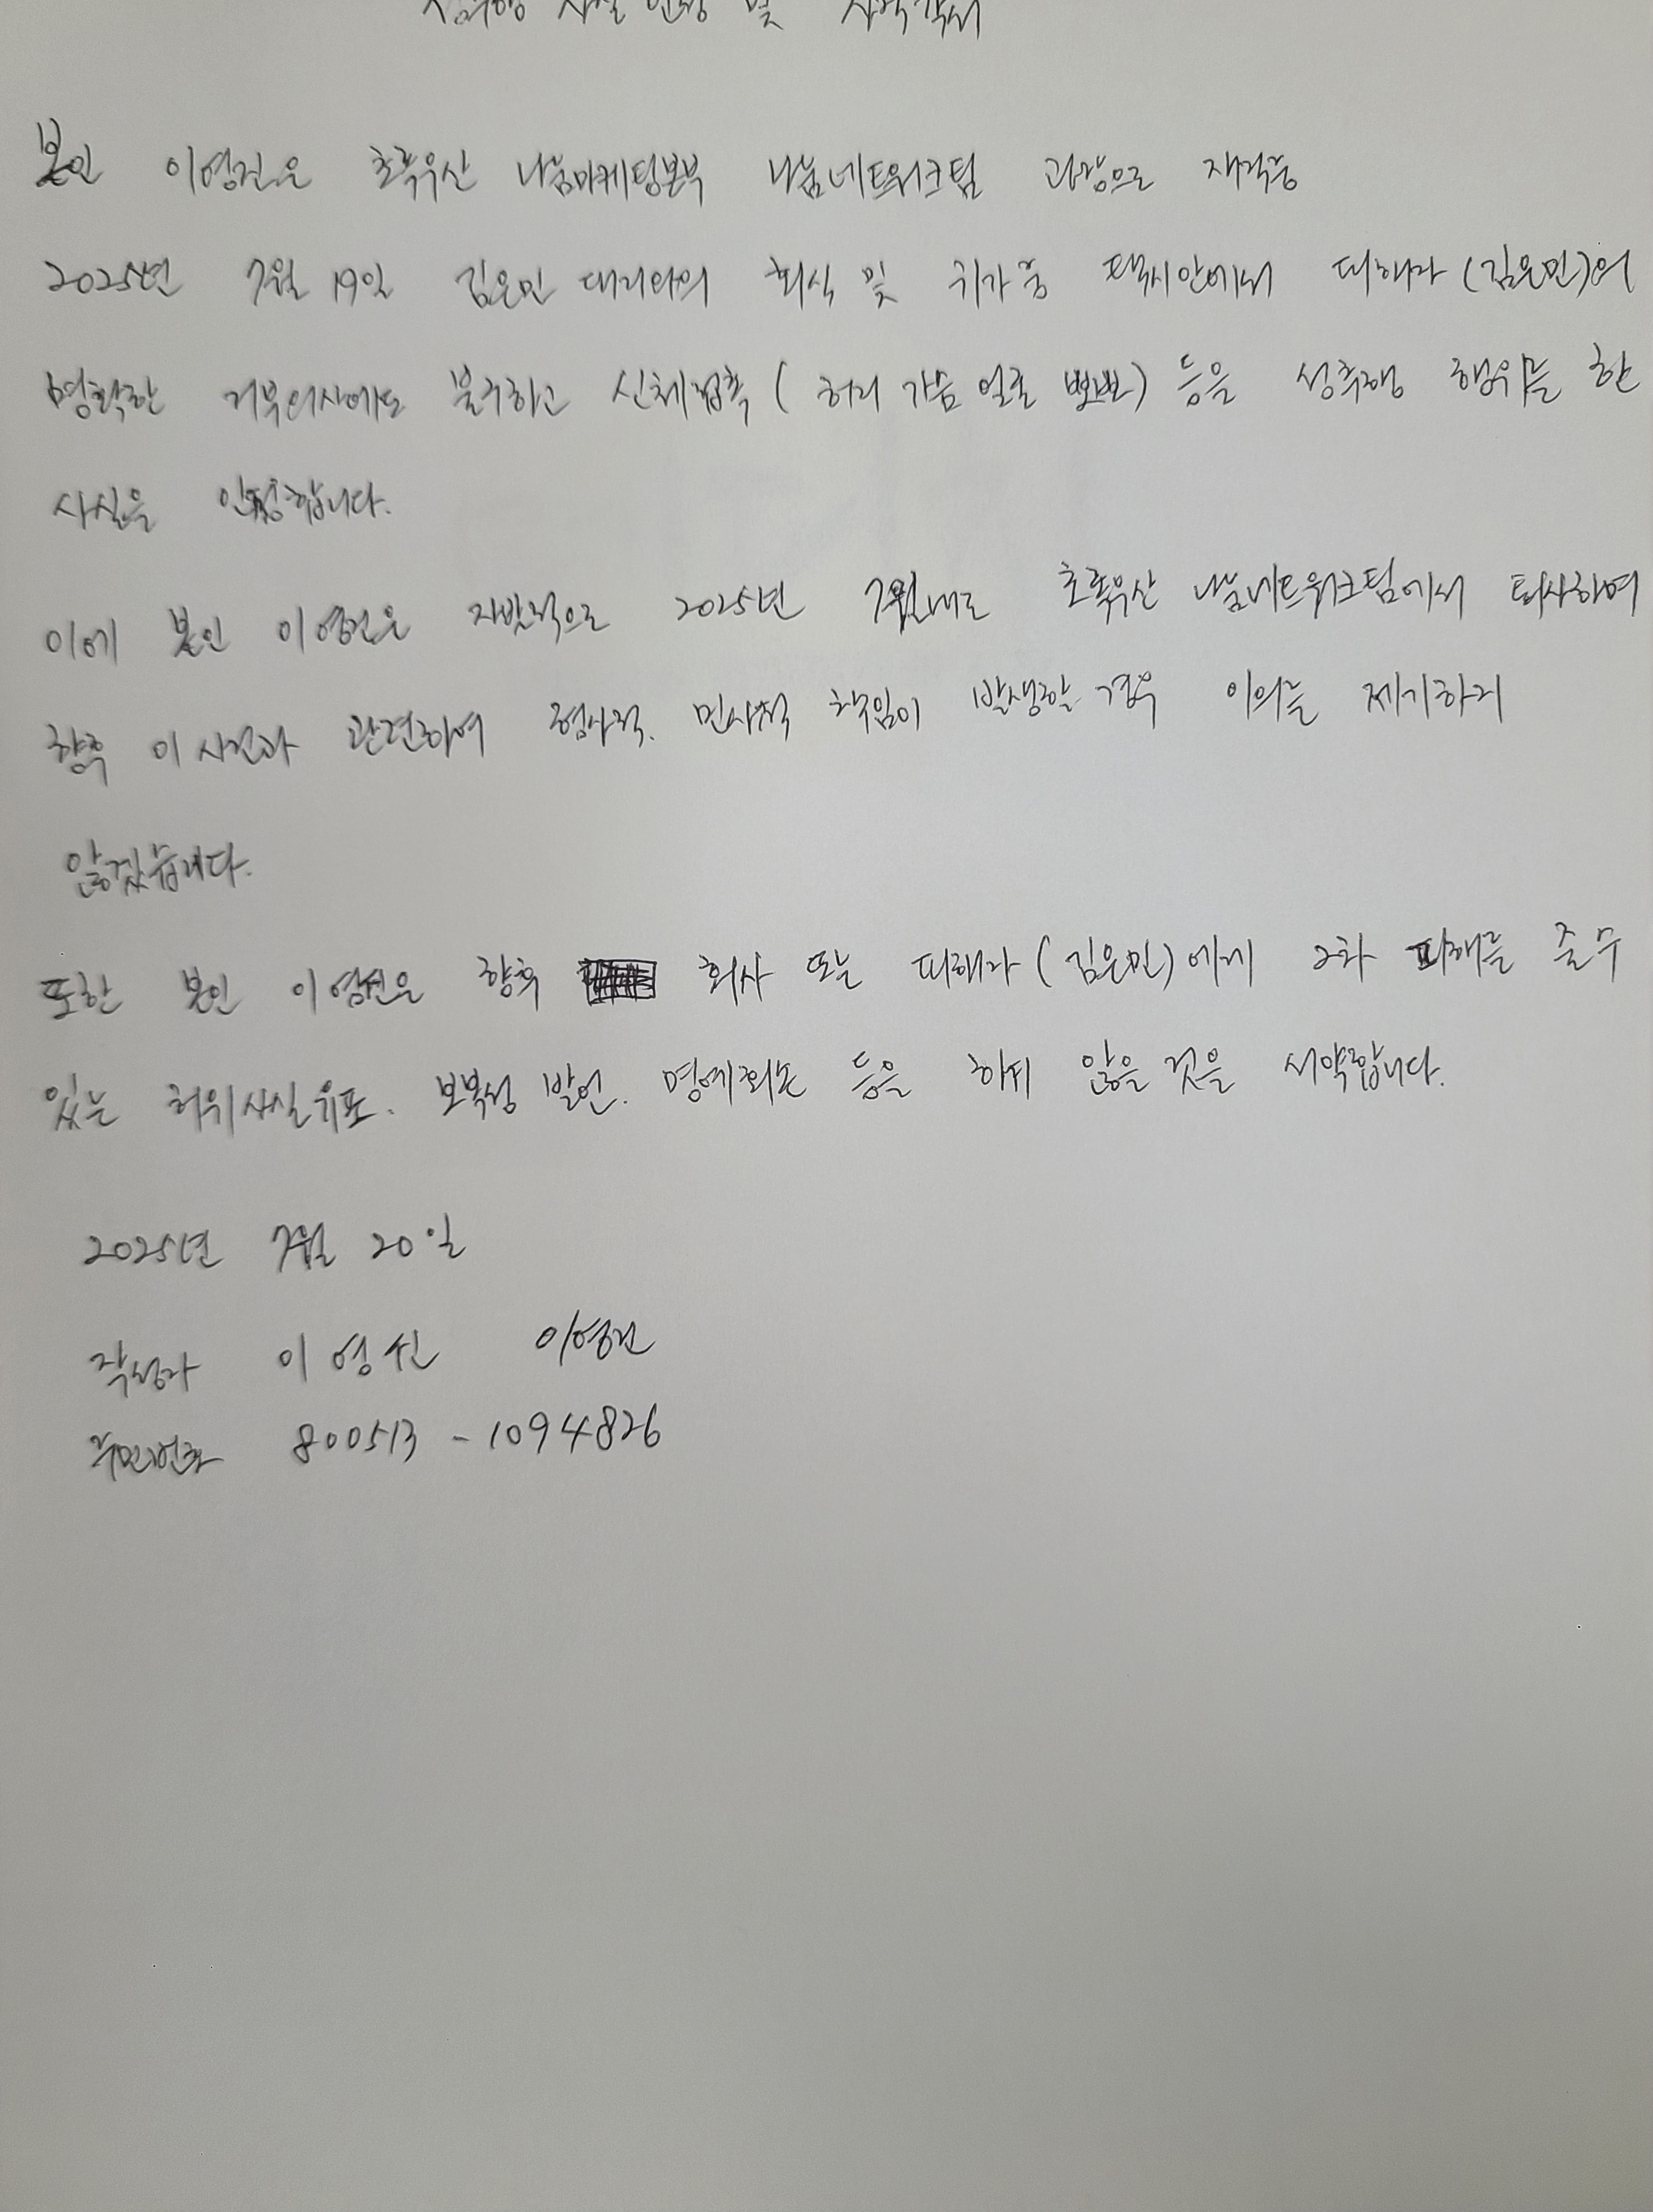 사실 인정 및
본인 이영진은 초록우산 나눔마케팅본부 나눔네트워크팀 과장으로 재직중
2025년 7월 19일 김은민 대리와의 회식 및 귀가중 택시안에서 피해자 (김은민)의
명확한 거부의사에도 불구하고 신체접촉 ( 허리 가슴 얼굴 뽀뽀) 등을 성추행 행위를 한
사실을 인정합니다.
이에 본인 이영진은 자발적으로 2025년 7월내로 초록우산 나눔네트워크팀에서 퇴사하여
향후 이 사건과 관련하여 형사적. 민사적 책임이 발생할 경우 이의를 제기하지
않겠습니다.
또한 본인 이영진은 향후 회사 또는 피해자 (김은민)에게 2차 피해를 줄 수
있는 허위사실유포. 보복성 발언. 명예훼손 등을 하지 않을 것을 서약합니다.
2025년 7월 20일
작성자 이영진 이영진
주민번호 800513 - 1094826